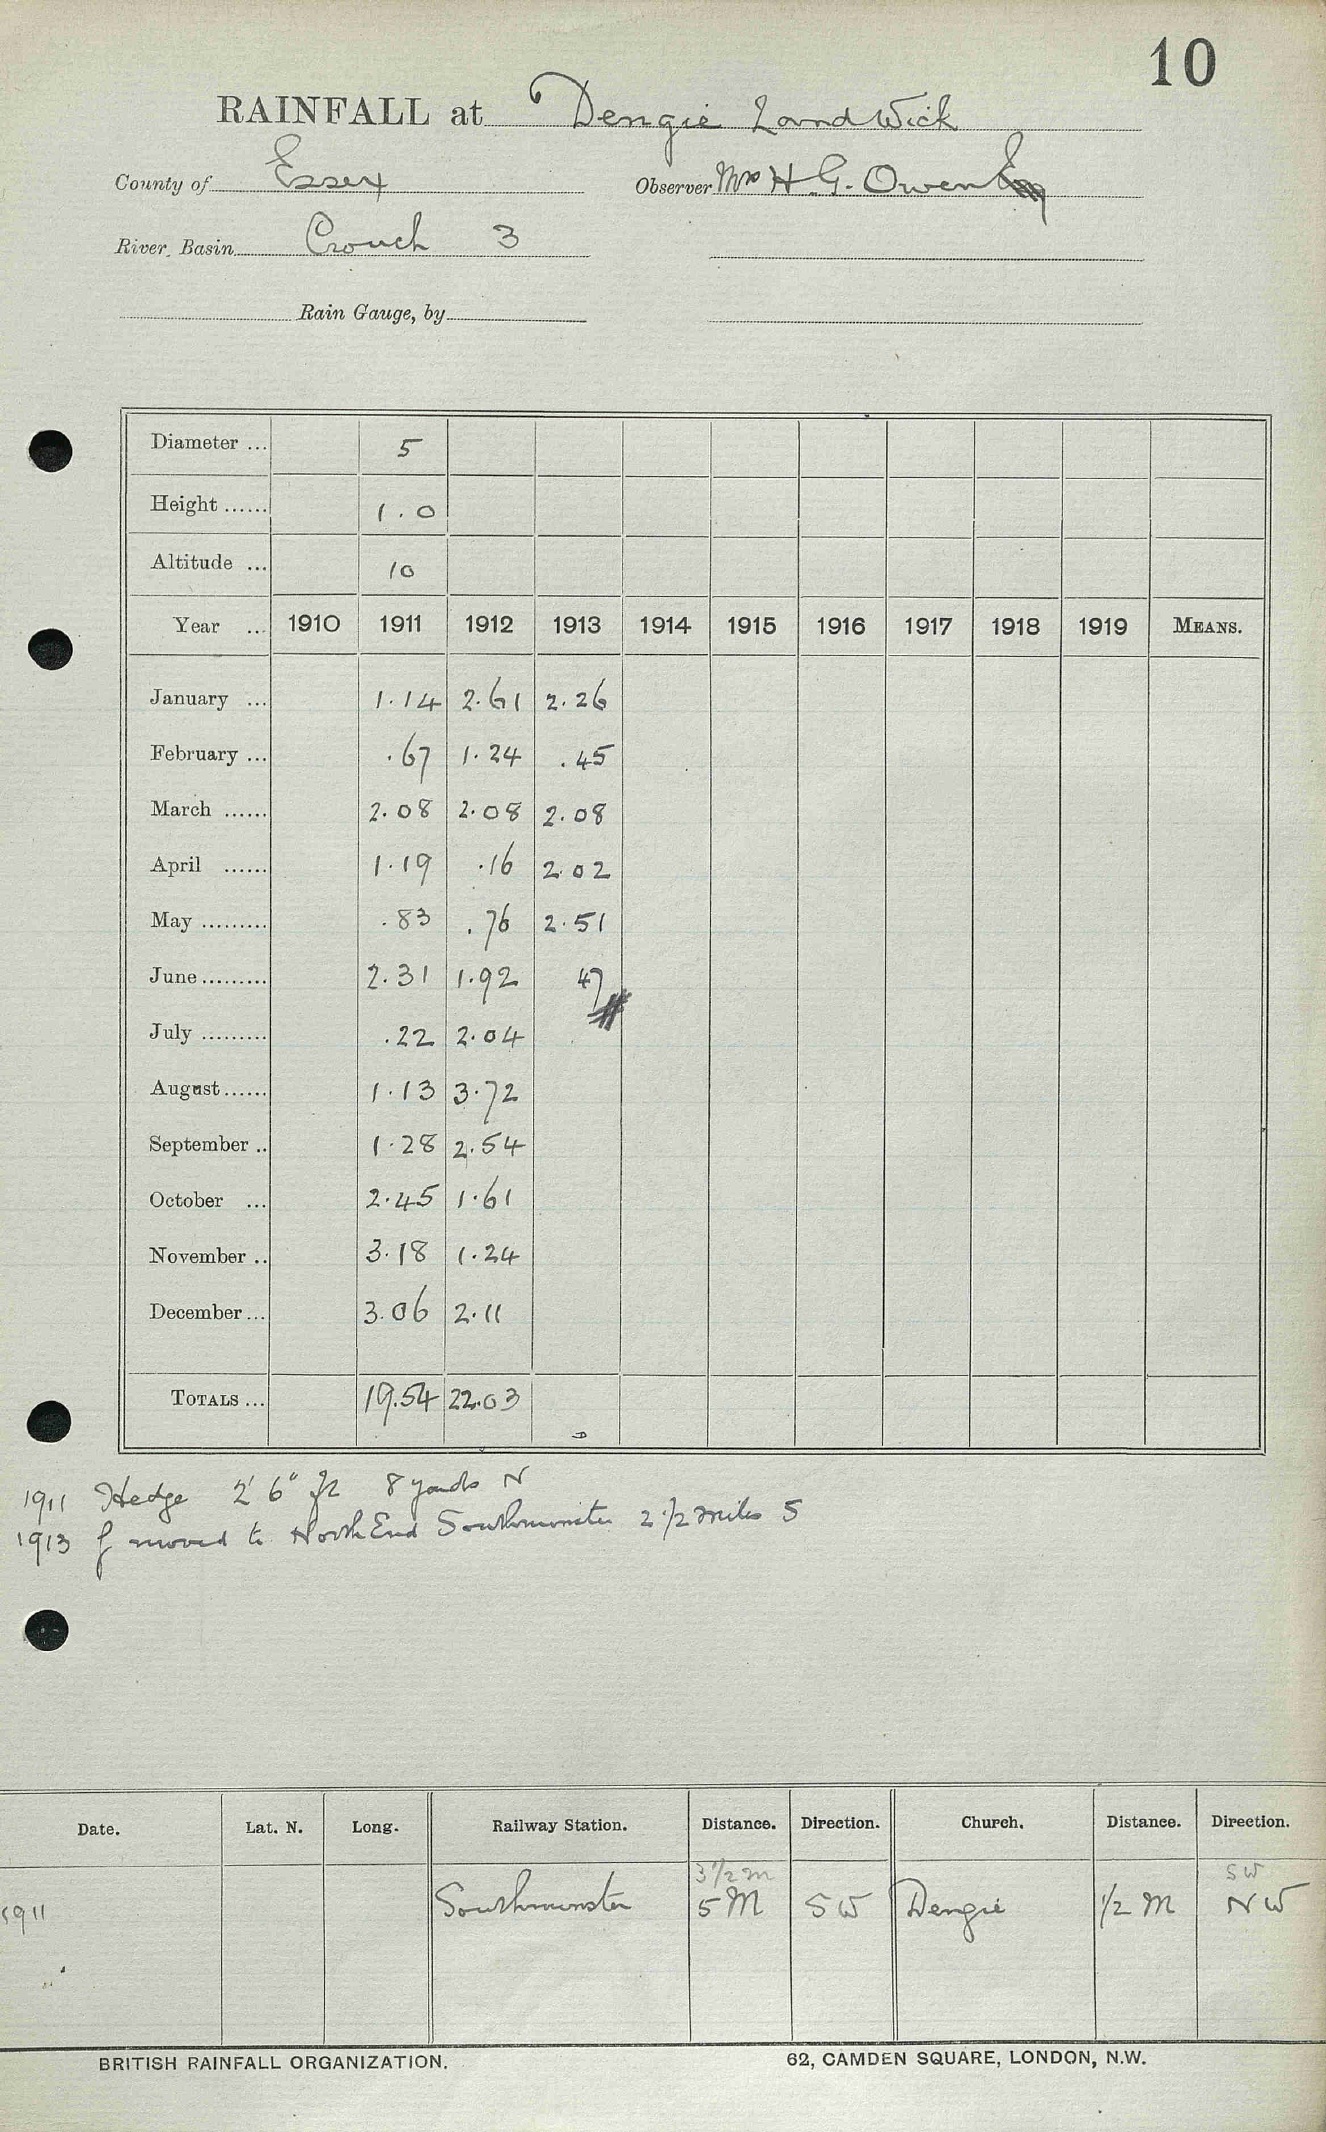 10
RAINFALL at Dengie Landwick
County of Essex Observer Mrs H. G. Owen
River Basin Crouch 3
Rain Gauge, by
Diameter ... 5
Height ...... 1.0
Altitude ... 10
Year .. 1910 1911 1912 1913 1914 1915 1916 1917 1918 1919 MEANS.
January ... 1.14 2.61 2.26
February ... .67 1.24 .45
March ...... 2.08 2.08 2.08
April ...... 1.19 .16 2.02
May ......... .83 .76 2.51
June ......... 2.31 1.92 47
July ......... .22 2.04
August ...... 1.13 3.72
September .. 1.28 2.54
October ... 2.45 1.61
November .. 3.18 1.24
December ... 3.06 2.11
TOTALS ... 19.54 22.03
1911 Hedge 2' 6" 8 yards N
1913 moved to North End Southminster 2 1/2 miles S
Date. Lat. N. Long. Railway Station. Distance. Direction. Church. Distance. Direction.
3 1/2 m SW
1911 Southminster 5 M SW Dengie 1/2 M NW
BRITISH RAINFALL ORGANIZATION. 62, CAMDEN SQUARE, LONDON, N.W.